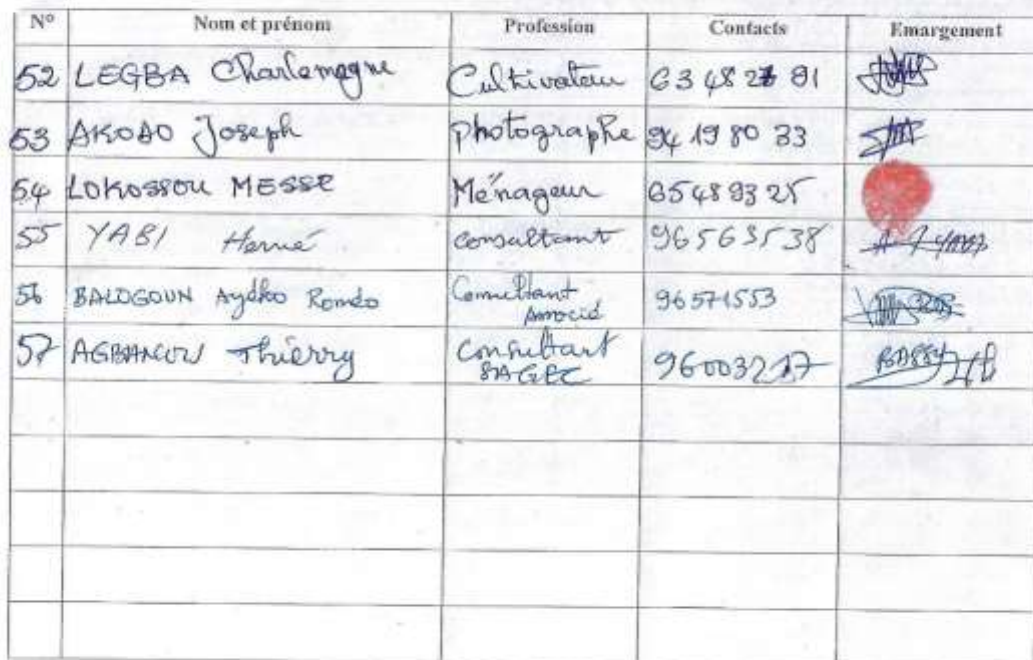 N° Nom et prénom Profession Contacts Emargement
52 LEGBA Charlemagne Cultivateur 63 48 81
53 AKOAO Joseph photographe 94 19 80 33
54 LOKOSSOU MESSE Ménageur 65 48 93 25
55 YABI Hervé consultant 96563538
56 BALOGOUN Roméo Consultant 96571553
Associé
57 Thierry Consultant 96003217
SAGEC